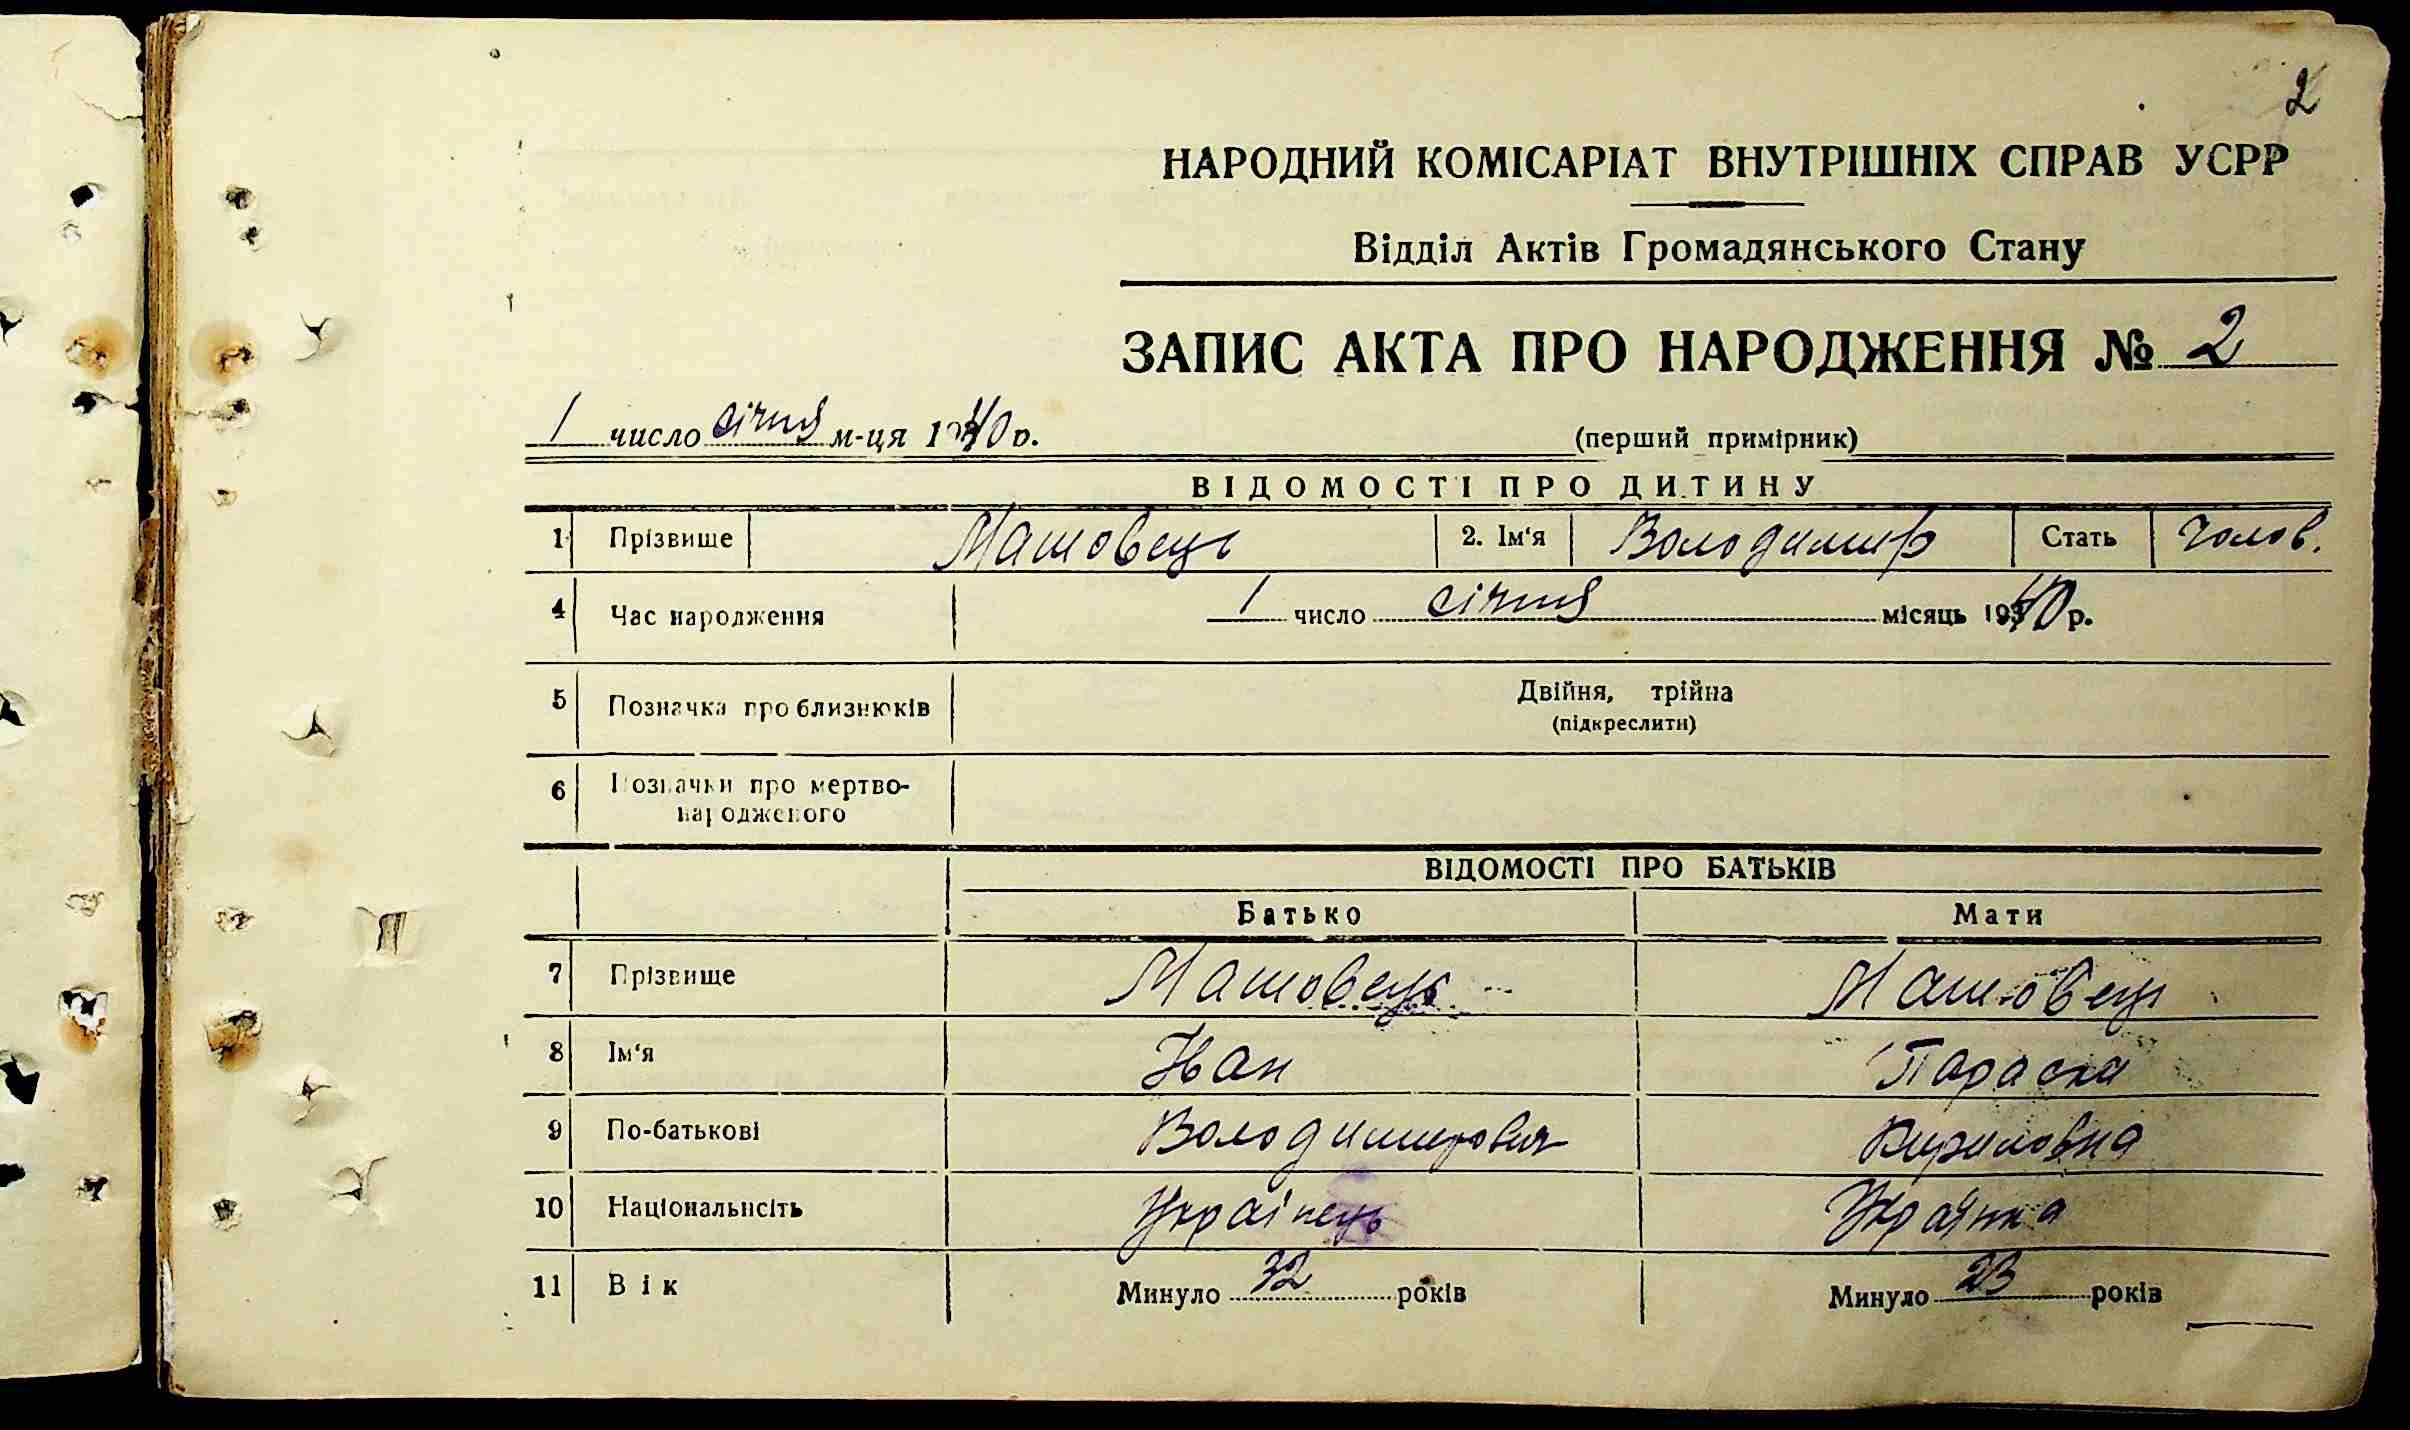 2
НАРОДНИЙ КОМІСАРІАТ ВНУТРІШНІХ СПРАВ УСРР
Відділ Актів Громадянського Стану
ЗАПИС АКТА ПРО НАРОДЖЕННЯ № 2
1 число січня м-ця 1940 р.
(перший примірник)
ВІДОМОСТІ ПРО ДИТИНУ
1 Прізвище Машовець 2. Ім'я Володимир Стать Чолов.
4 Час народження 1 число січня місяць 1940 р.
5 Позначка про близнюків Двійня, трійна
(підкреслити)
6 Позначки про мертво-
народженого
ВІДОМОСТІ ПРО БАТЬКІВ
Батько Мати
7 Прізвище Машовець Машовець
8 Ім'я Іван Параска
9 По-батькові Володимирович Кириловна
10 Національнсіть Українець Українка
11 Вік Минуло 32 років Минуло 23 років